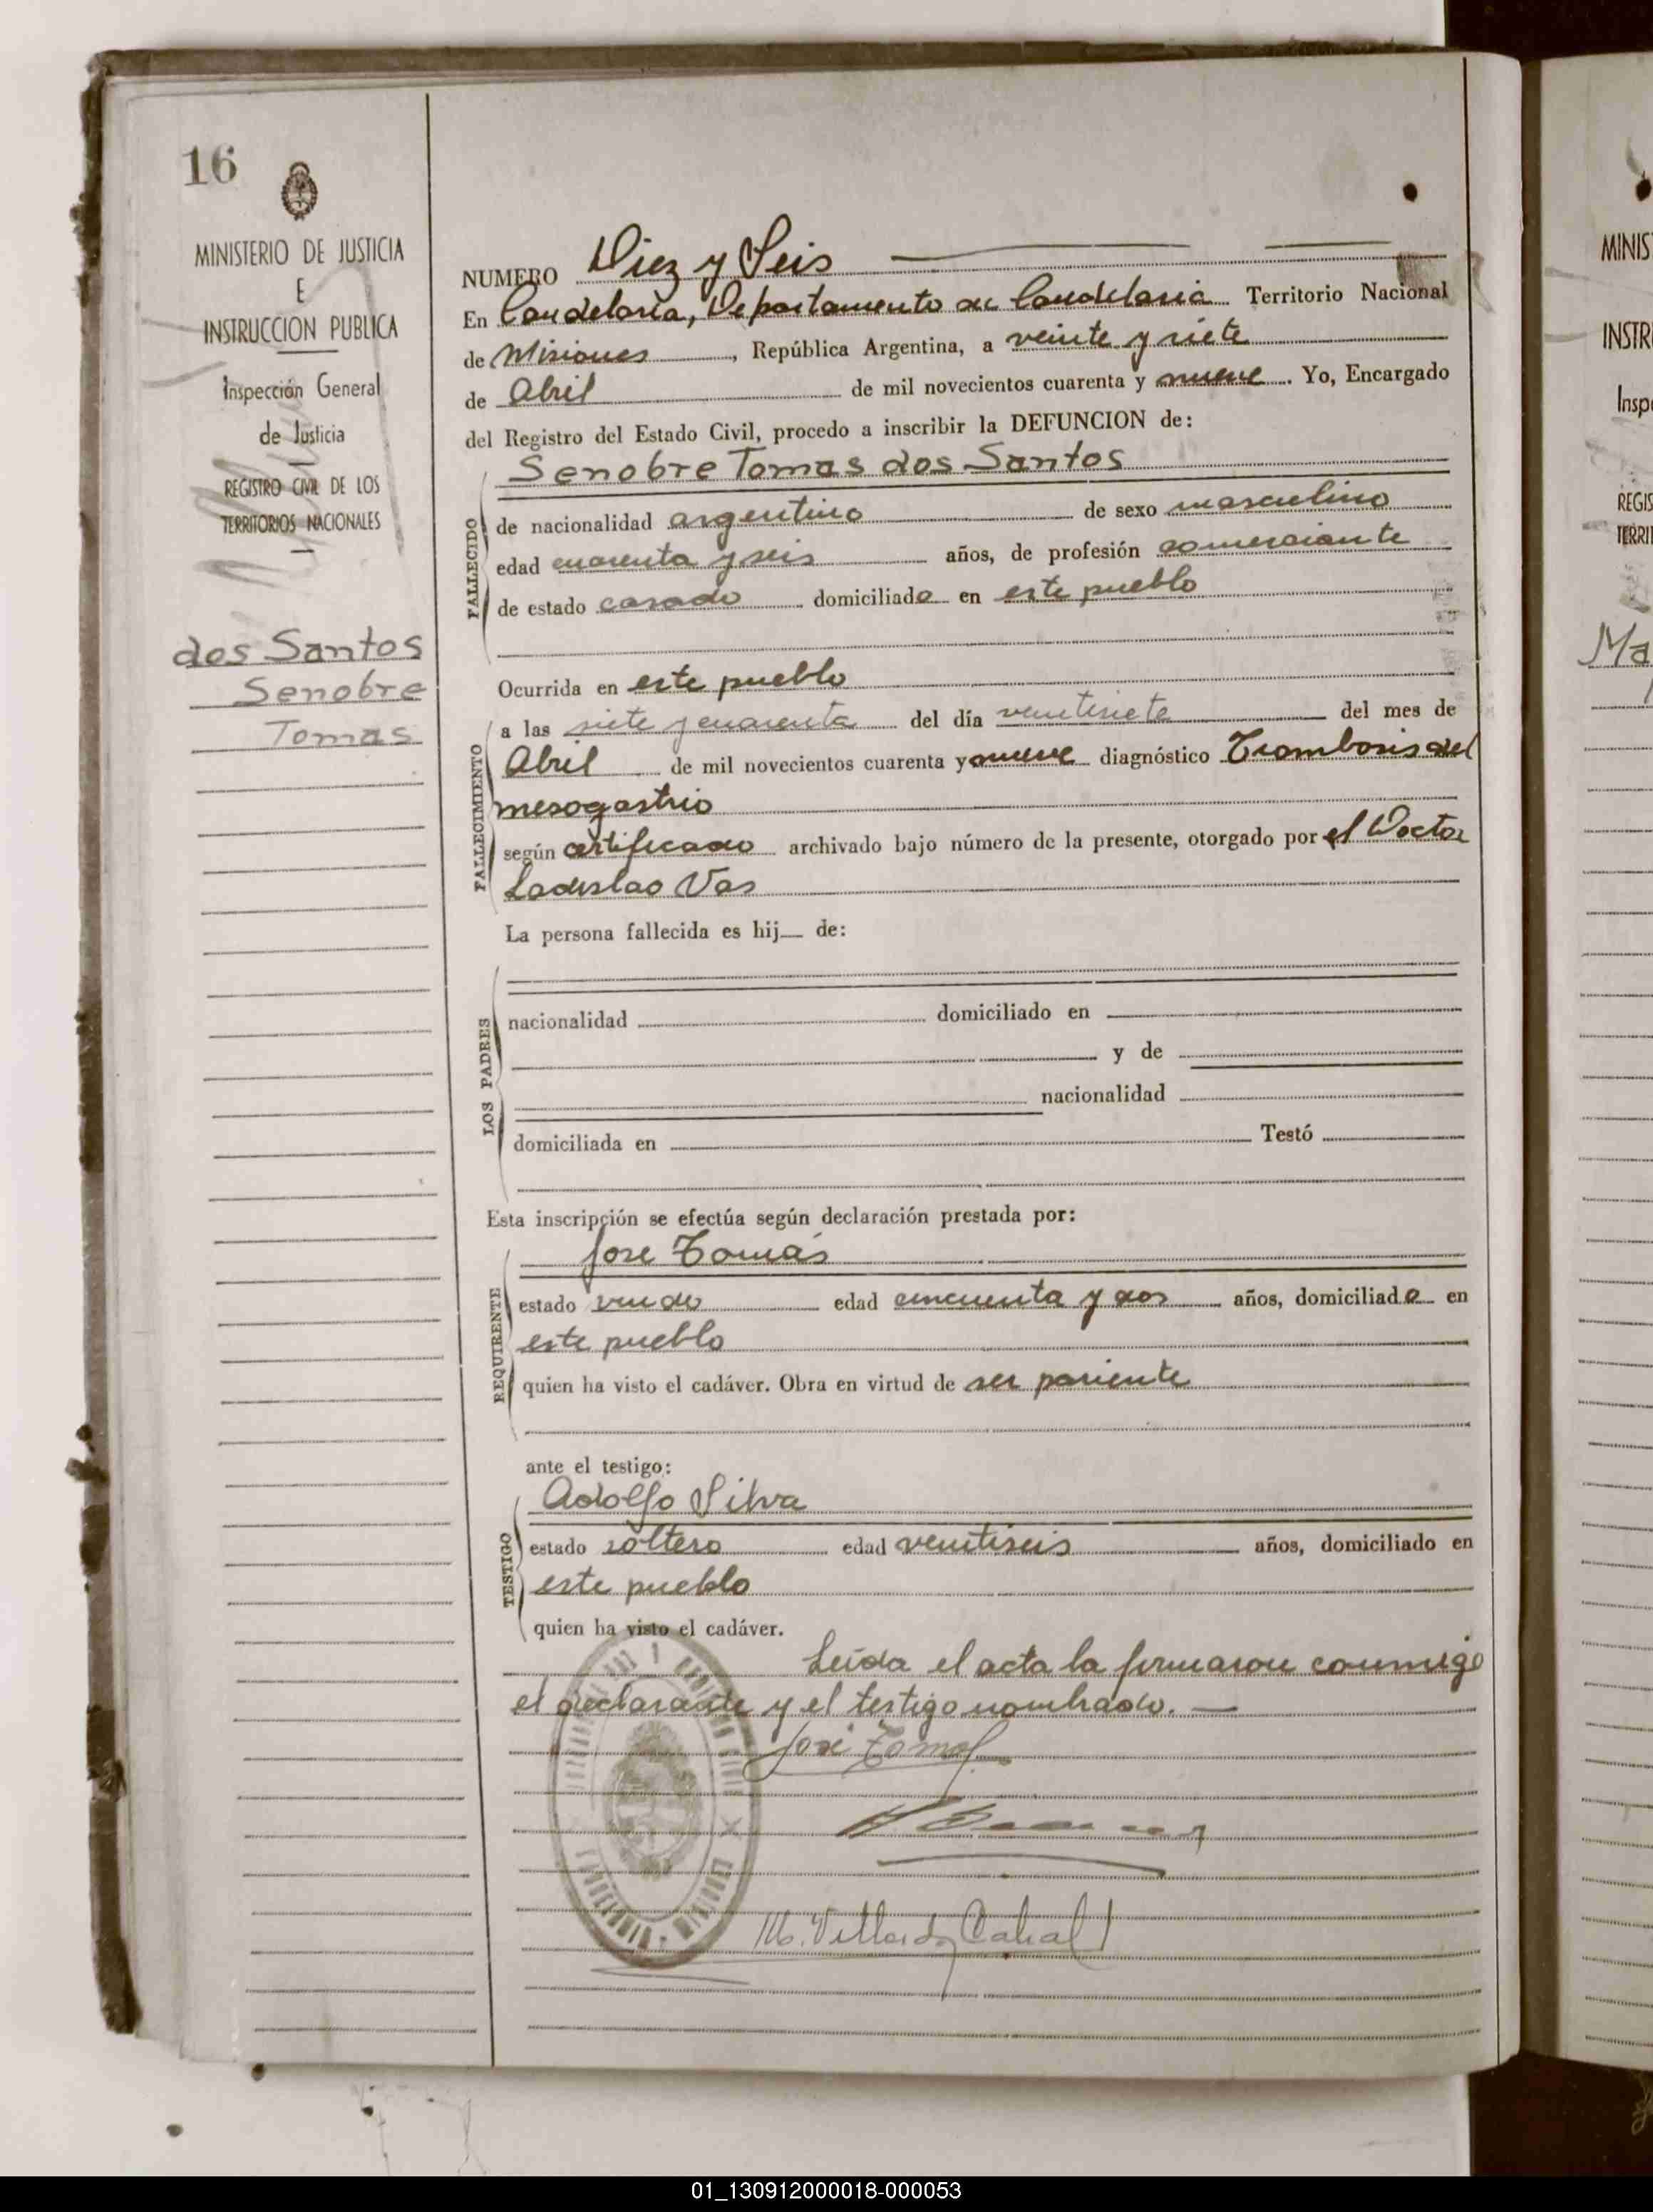 16
MINISTERIO DE JUSTICIA
E
INSTRUCCION PUBLICA
Inspección General
de Justicia
REGISTRO CIVIL DE LOS
TERRITORIOS NACIONALES
dos Santos
Senobre
Tomas
NUMERO Diez y Seis
En Candelaria, Departamento de Candelaria Territorio Nacional
de Misiones, República Argentina, a veinte y siete
de Abril de mil novecientos cuarenta y nueve. Yo, Encargado
del Registro del Estado Civil, procedo a inscribir la DEFUNCION de:
FALLECIDO
Senobre Tomas dos Santos
de nacionalidad argentino de sexo masculino
edad cuarenta y seis años, de profesión comerciante
de estado casado domiciliado en este pueblo
Ocurrida en este pueblo
FALLECIMIENTO
a las siete y cuarenta del día ventisiete del mes de
Abril de mil novecientos cuarenta y nueve diagnóstico Trombosis del
mesogastrio
según certificado archivado bajo número de la presente, otorgado por el Doctor
Ladislao Vas
La persona fallecida es hij de:
LOS PADRES
nacionalidad domiciliado en
y de
nacionalidad
domiciliada en Testó
Esta inscripción se efectúa según declaración prestada por:
REQUIRENTE
Jose Tomás
estado viudo edad cincuenta y dos años, domiciliado en
este pueblo
quien ha visto el cadáver. Obra en virtud de ser pariente
ante el testigo:
TESTIGO
Adolfo Silva
estado soltero edad ventiseis años, domiciliado en
este pueblo
quien ha visto el cadáver.
Leída el acta la firmaron conmigo
el declarante y el testigo nombrado.
José Tomas
Cabral
MINIS
INSTR
Insp
REGIS
TERRI
Ma
01_130912000018-000053